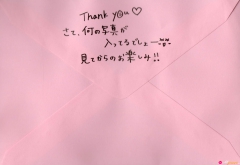 Thank you♡
さて、何の写真が
入ってるでしょー
見てからのお楽しみ!!